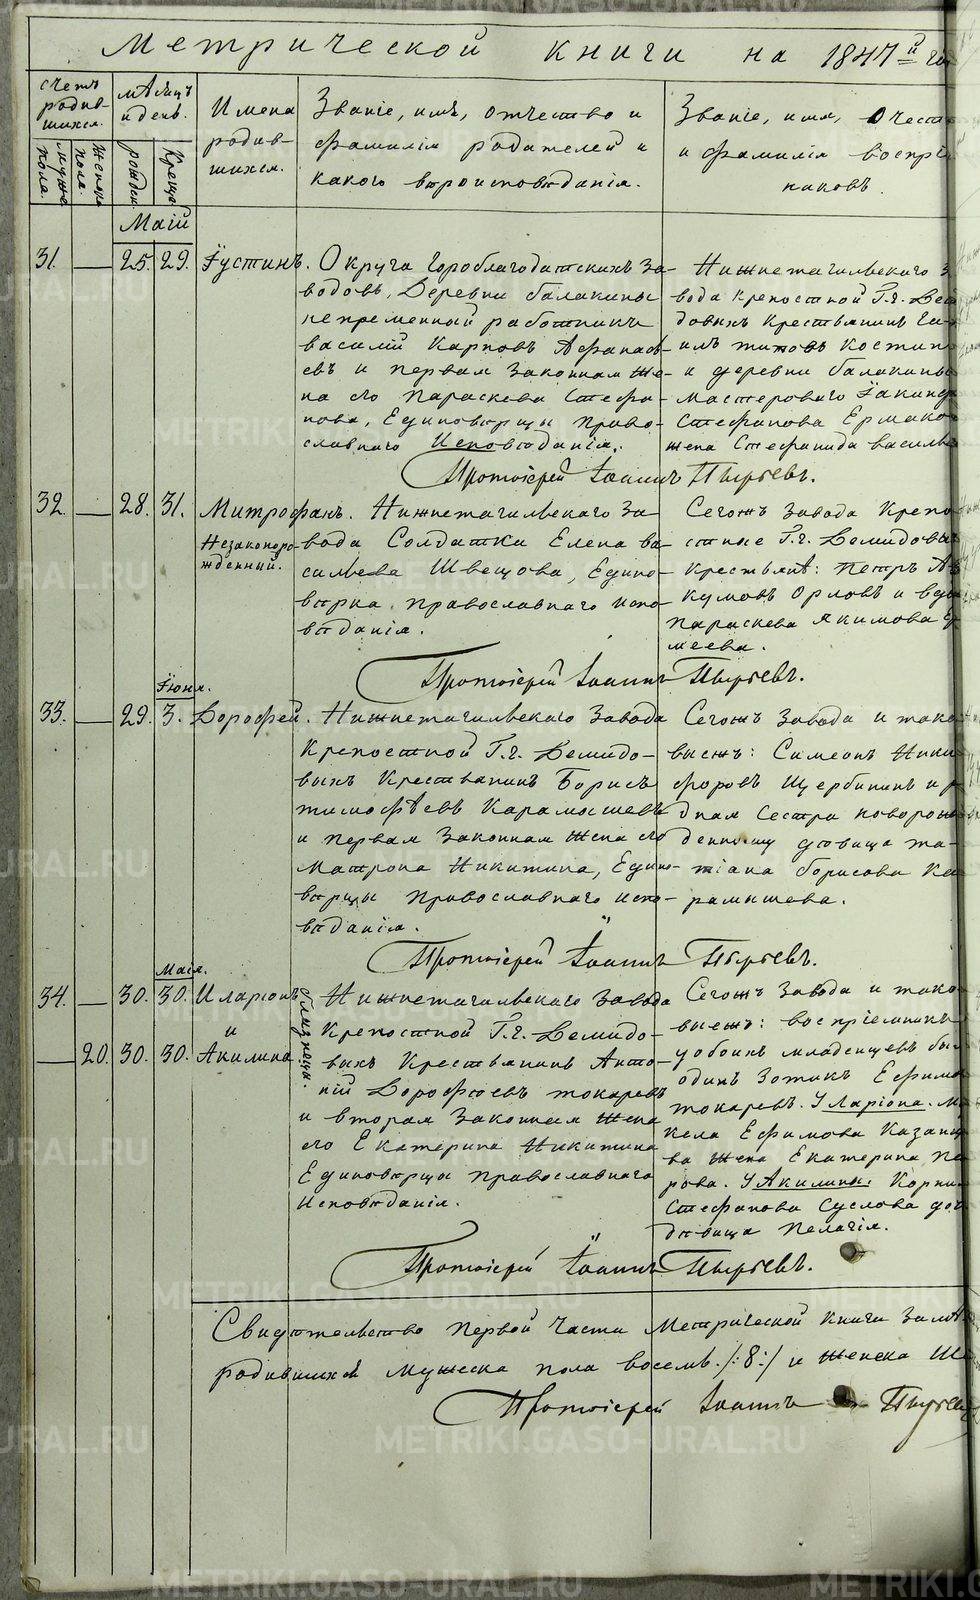 Метрической книги на 1847й го
счетъ родив-шихся.
мѣсяцъ и день.
Имена родив-шихся.
Званіе, имя, отчество и фамилія родителей и какого вѣроисповѣданія.
Званіе, имя, отчест
и фамилія воспрі
никовъ.
мужеска пола.
женска пола.
рожден.
Креще.
Маій
31. — 25. 29. Іустинъ.
Округа Гороблагодатскихъ За-
водовъ, Деревни балакины
непременный работникъ
василій Карповъ Афанась-
евъ и первая Законная же-
на его Параскева Стефа-
нова, Единовѣрцы Право-
славнаго Исповѣданія.
Нижнетагильскаго З
вода крепостной Г.г. Деми
довыхъ Крестьянинъ
титовъ Костин
и деревни балакины
мастероваго Іакинф
Стефанова Ермако
жена Стефанида василь
Протоіерей Іоаннъ Пырьевъ.
32. — 28. 31. Митрофанъ.
Незаконоро-
жденный.
Нижнетагильскаго За-
вода Солдатка Елена ва-
сильева Швецова, Едино-
вѣрка Православнаго испо-
вѣданія.
Сегожъ Завода Крепо-
стные Г.г. Демидовы
Крестьянѣ: Петръ Ав
кумовъ Орловъ и вдо
Параскева Якимова Ер
меева.
Протоіерей Іоаннъ Пырьевъ.
Іюня.
33. — 29. 3. Дорофей.
Нижнетагильскаго Завода
Крепостной Г.г. Демидо-
выхъ Крестьянинъ Борисъ
тимофѣевъ Карамышевъ
и первая Законная жена его
Матрона Никитина, Едино-
вѣрцы Православнаго испо-
вѣданія.
Сегожъ Завода и тако
выежъ: Симеонъ Ники
форовъ Щербининъ и р
дная Сестра новорож
денному дѣвица та-
тіана борисова Ка
рамышева.
Протоіерей Іоаннъ Пырьевъ.
Маія.
34. — 30. 30. Иларіонъ
и
— 20. 30. 30. Акилина
близнецы.
Нижнетагильскаго Завода
Крепостной Г.г. Демидо-
выхъ Крестьянинъ Анто-
ній Дорофѣевъ токаревъ
и вторая Законная жена
его Екатерина Никитина
Единовѣрцы Православнаго
Исповѣданія.
Сегожъ Завода и тако
выежъ: воспріемникъ
у обоихъ младенцевъ бы
одинъ Зотикъ Ефимо
токаревъ. У Ларіона. М
кела Ефимова Казан
ва жена Екатерина Пе
рова. У Акилины. Корни
Стефанова Суслова до
дѣвица Пелагія.
Протоіерей Іоаннъ Пырьевъ.
Свидѣтельство Первой части Метрической Книги За маі
родившихся мужеска пола восемь /:8:/ и женска Ше
Протоіерей Іоаннъ Пырьев
METRIKI.GASO-URAL.RU